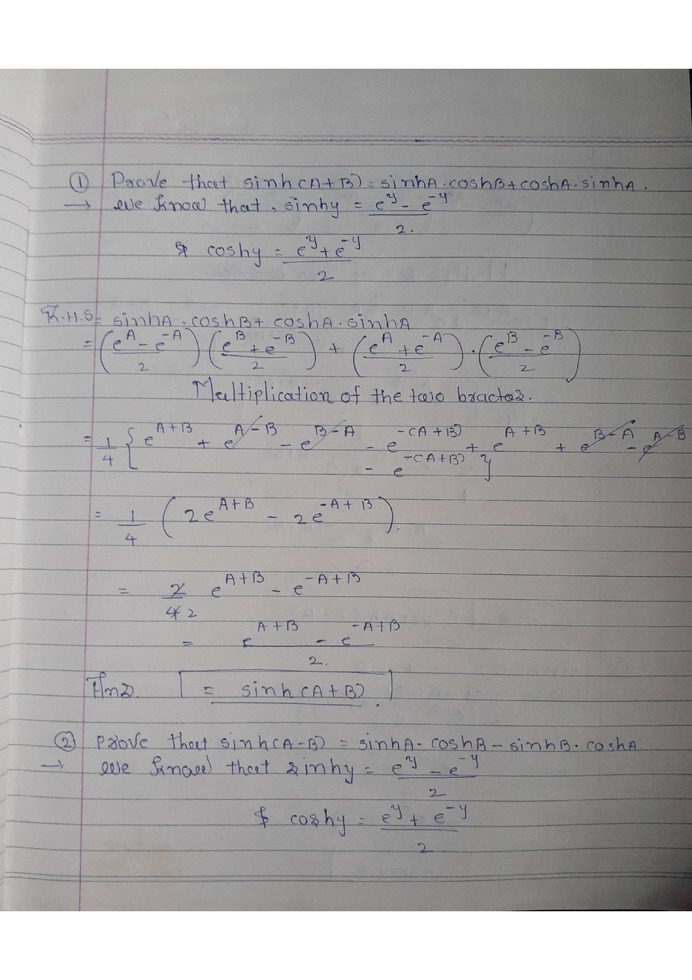 ① Prove that sinh(A+B) = sinhA·coshB + coshA·sinhA.
→ we know that, sinhy = (e^y - e^-y)/2.
& coshy = (e^y + e^-y)/2
R.H.S = sinhA·coshB + coshA·sinhA
= ((e^A - e^-A)/2) ((e^B + e^-B)/2) + ((e^A + e^-A)/2)·((e^B - e^-B)/2)
Multiplication of the two bractor.
= 1/4 { e^A+B + e^A-B - e^B-A - e^-(A+B) + e^A+B + e^B-A - e^A-B
- e^-(A+B) }
= 1/4 (2e^A+B - 2e^-A+B).
= 2/4 2 e^A+B - e^-A+B
= (e^A+B - e^-A+B)/2.
= sinh(A+B).
② Prove that sinh(A-B) = sinhA·coshB - sinhB·coshA
→ we know that sinhy = (e^y - e^-y)/2
& coshy = (e^y + e^-y)/2